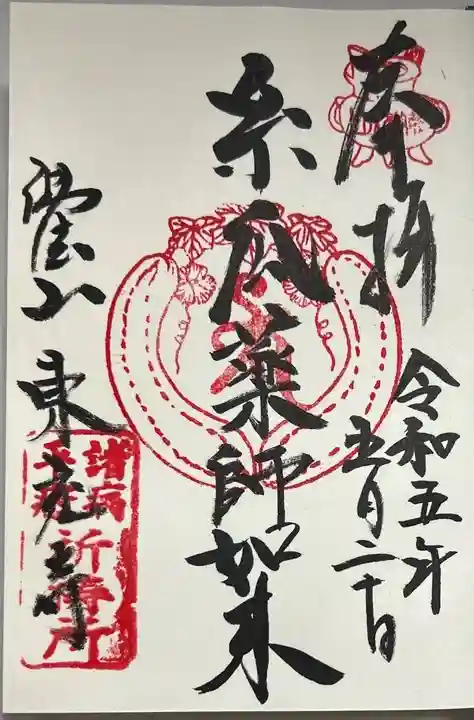 奉拝
令和五年
五月二十日
糸瓜薬師如来
醫王山 東充寺
諸病
祈祷所